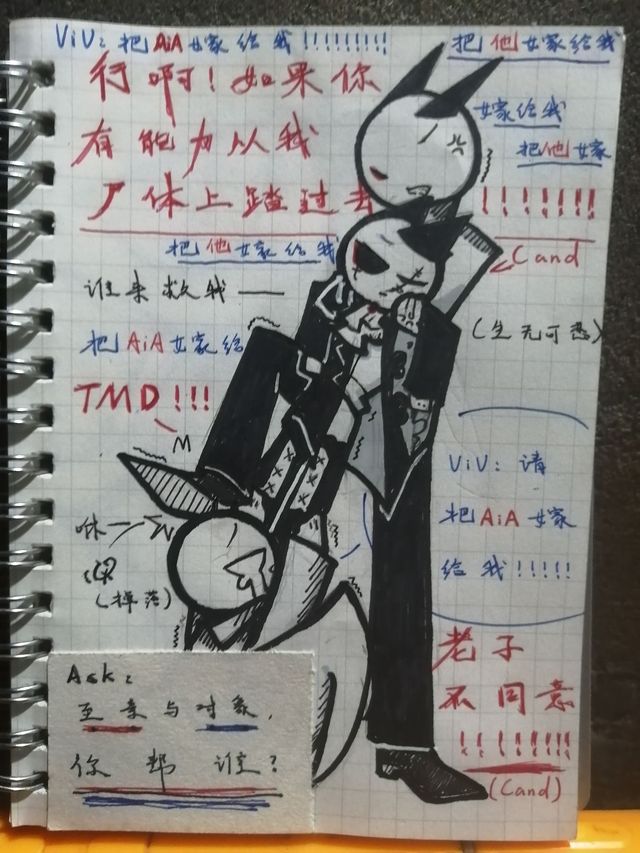 ViV: 把AiA嫁给我!!!!!!!!!
把他嫁给我
行啊!如果你
嫁给我
有能力从我
把他嫁
尸体上踏过去!!!!!!!
把他嫁给我
Cand
谁来救我——
(生无可恋)
把AiA嫁给
TMD!!!
M
ViV: 请
把AiA嫁
给我!!!!!
咻一
(掉落)
老子
不同意
!!!!!!!!
(Cand)
Ask:
至亲与对象,
你帮谁?